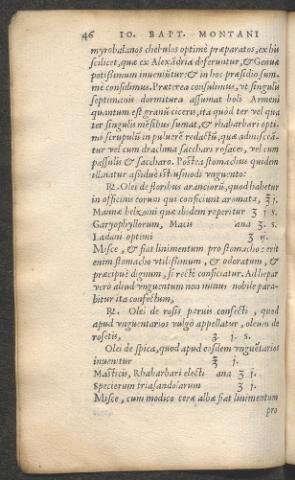 46 IO. BAPT. MONTANI
myrobalanos chebulos optimè præparatos, ex his
scilicet, quæ ex Alexādria deferuntur, & Genuæ
potissimum inueniūtur: & in hoc præsidio sum-
mè confidimus. Præterea consulimus, vt singulis
septimanis dormitura assumat boli Armeni
quantum est grani ciceris, ita quòd ter vel qua
ter singulis mēsibus sumat, & rhabarbari opti-
mi scrupulū in puluerē redactū, quæ admisceā-
tur vel cum drachma sacchari rosacei, vel cum
passulis & saccharo. Postea stomachus quidem
illinatur assiduè isthusmodi vnguento:
℞. Olei de floribus aranciorū, quod habetur
in officinis eorum qui conficiunt aromata, ℥ j.
Mannæ quæ ibidem reperitur ʒ j s.
Garyophyllorum, Macis ana ʒ. s.
Ladani optimi ʒ
Misce, & fiat linimentum pro stomacho: erit
enim stomacho vtilissimum, & odoratum, &
præcipuè dignum, si rectè conficiatur. Ad hepar
verò aliud vnguentum non minus nobile para-
bitur ita confectum,
℞. Olei de rosis paruis confecti, quod
apud vnguentarios vulgò appellatur, oleum de
rosetis, ʒ. j. s.
Olei de spica, quod apud eosdem vnguētarios
inuenitur ℥ j.
Masticis, Rhabarbari electi ana ʒ j.
Specierum triasandalarum ʒ j.
Misce, cum modico ceræ albæ fiat linimentum
pro